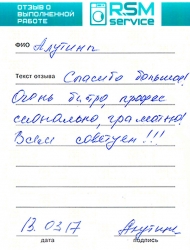 ОТЗЫВ О
ВЫПОЛНЕННОЙ
РАБОТЕ
RSM
service
ФИО Алутин
Текст отзыва Спасибо большое!
Очень быстро, профес
сионально, грамотно!
Всем советуем!!!
13.03.17
дата
подпись